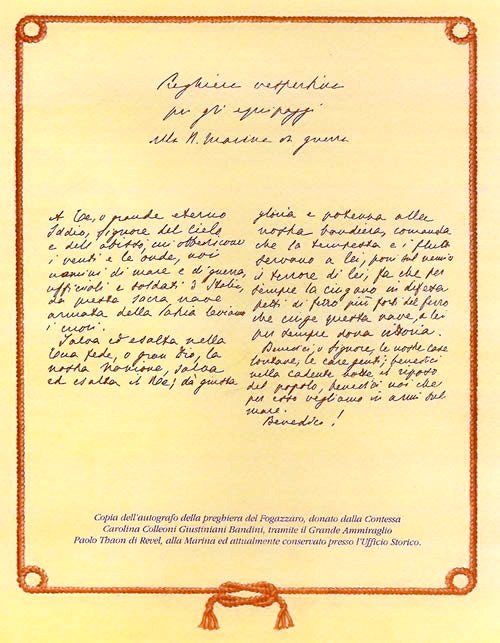 Preghiera vespertina
per gli equipaggi
della R. Marina da guerra
A Te, o grande eterno
Iddio, Signore del cielo
e dell'abisso, cui obbediscono
i venti e le onde, noi
uomini di mare e di guerra,
ufficiali e soldati d'Italia,
da questa sacra nave
armata della Patria leviamo
i cuori.
Salva ed esalta nella
Tua fede, o gran Dio, la
nostra Nazione, salva
ed esalta il Re; dà giusta
gloria e potenza alla
nostra bandiera, comanda
che la tempesta e i flutti
servano a lei, poni sul nemico
il terrore di lei, fa che per
sempre la cingano in difesa
petti di ferro più forti del ferro
che cinge questa nave, a lei
per sempre dona vittoria.
Benedici, o Signore, le nostre case
lontane, le care genti; benedici
nella cadente notte il riposo
del popolo, benedici noi che
per esso vegliamo in armi sul
mare.
Benedici!
Copia dell'autografo della preghiera del Fogazzaro, donato dalla Contessa
Carolina Colleoni Giustiniani Bandini, tramite il Grande Ammiraglio
Paolo Thaon di Revel, alla Marina ed attualmente conservato presso l'Ufficio Storico.